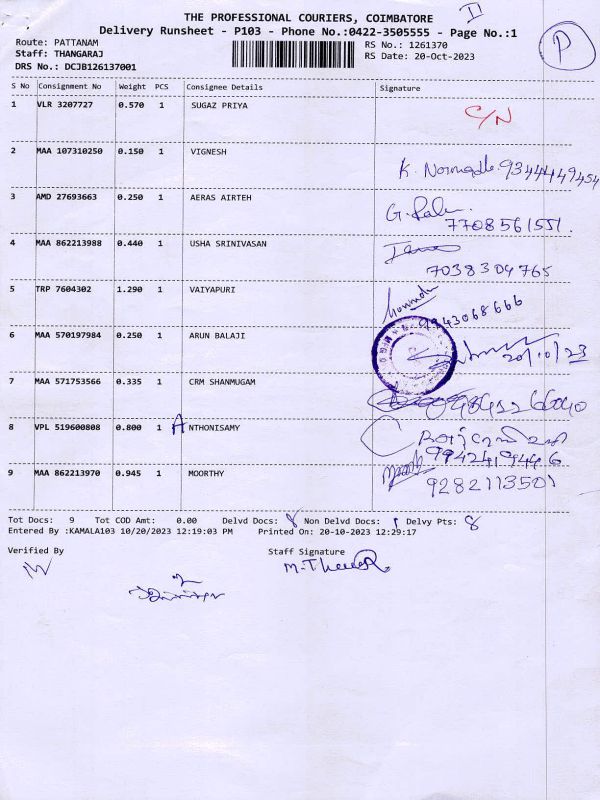 THE PROFESSIONAL COURIERS, COIMBATORE
II
Delivery Runsheet - P103 - Phone No.:0422-3505555 - Page No.:1
P
Route: PATTANAM
RS No.: 1261370
Staff: THANGARAJ
RS Date: 20-Oct-2023
DRS No.: DCJB126137001
S No Consignment No Weight PCS Consignee Details Signature
1 VLR 3207727 0.570 1 SUGAZ PRIYA C/N
2 MAA 107310250 0.150 1 VIGNESH
K. 9344449454
3 AMD 27693663 0.250 1 AERAS AIRTEH
G.
7708561551.
4 MAA 862213988 0.440 1 USHA SRINIVASAN
7038304765
5 TRP 7604302 1.290 1 VAIYAPURI
9943068666
6 MAA 570197984 0.250 1 ARUN BALAJI
20/10/23
7 MAA 571753566 0.335 1 CRM SHANMUGAM
8 VPL 519600808 0.800 1 ANTHONISAMY
9942419446
9 MAA 862213970 0.945 1 MOORTHY
9282113501
Tot Docs: 9 Tot COD Amt: 0.00 Delvd Docs: 8 Non Delvd Docs: 1 Delvy Pts: 8
Entered By :KAMALA103 10/20/2023 12:19:03 PM Printed On: 20-10-2023 12:29:17
Verified By Staff Signature